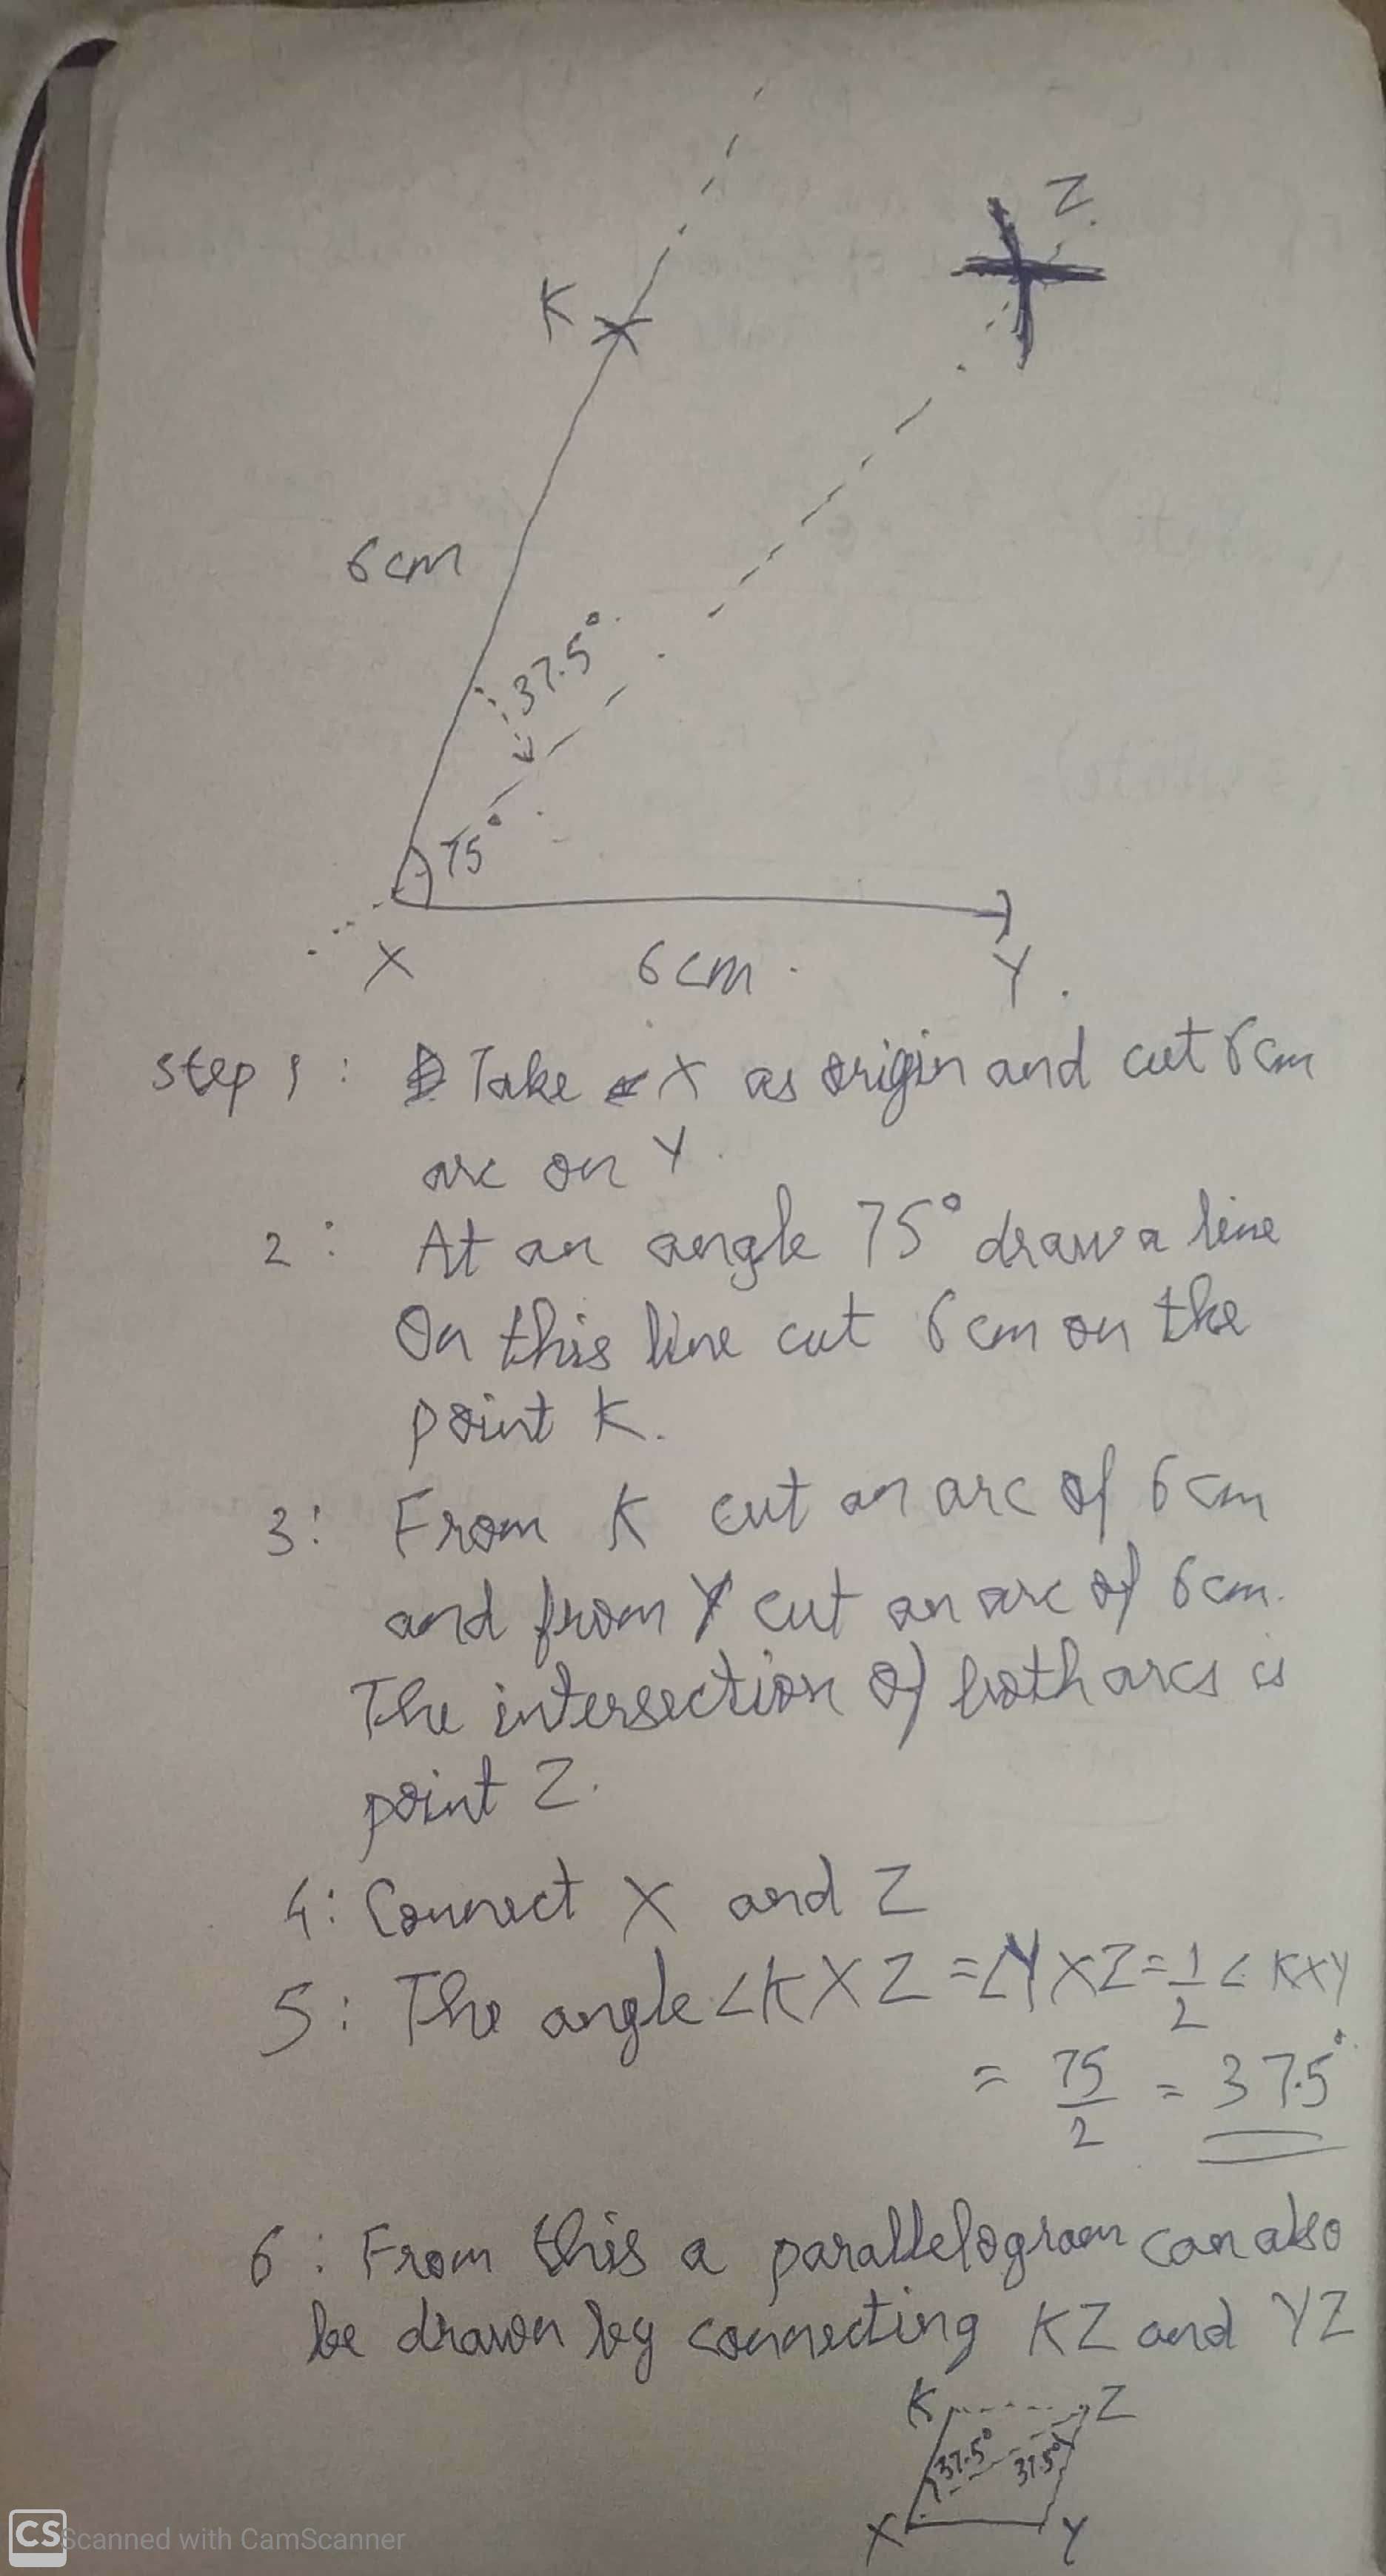 Z.
K
6cm
37.5°
75°
X
6cm
Y.
Step 1: Take X as origin and cut 6cm
arc on Y.
2: At an angle 75° draw a line
On this line cut 6cm on the
point K.
3: From K cut an arc of 6cm
and from Y cut an arc of 6cm.
The intersection of both arcs is
point Z.
4: Connect X and Z
5: The angle ∠KXZ = ∠YXZ = 1/2 ∠KXY
= 75/2 = 37.5°
6: From this a parallelogram can also
be drawn by connecting KZ and YZ
K Z
37.5° 37.5°
X Y
CS Scanned with CamScanner